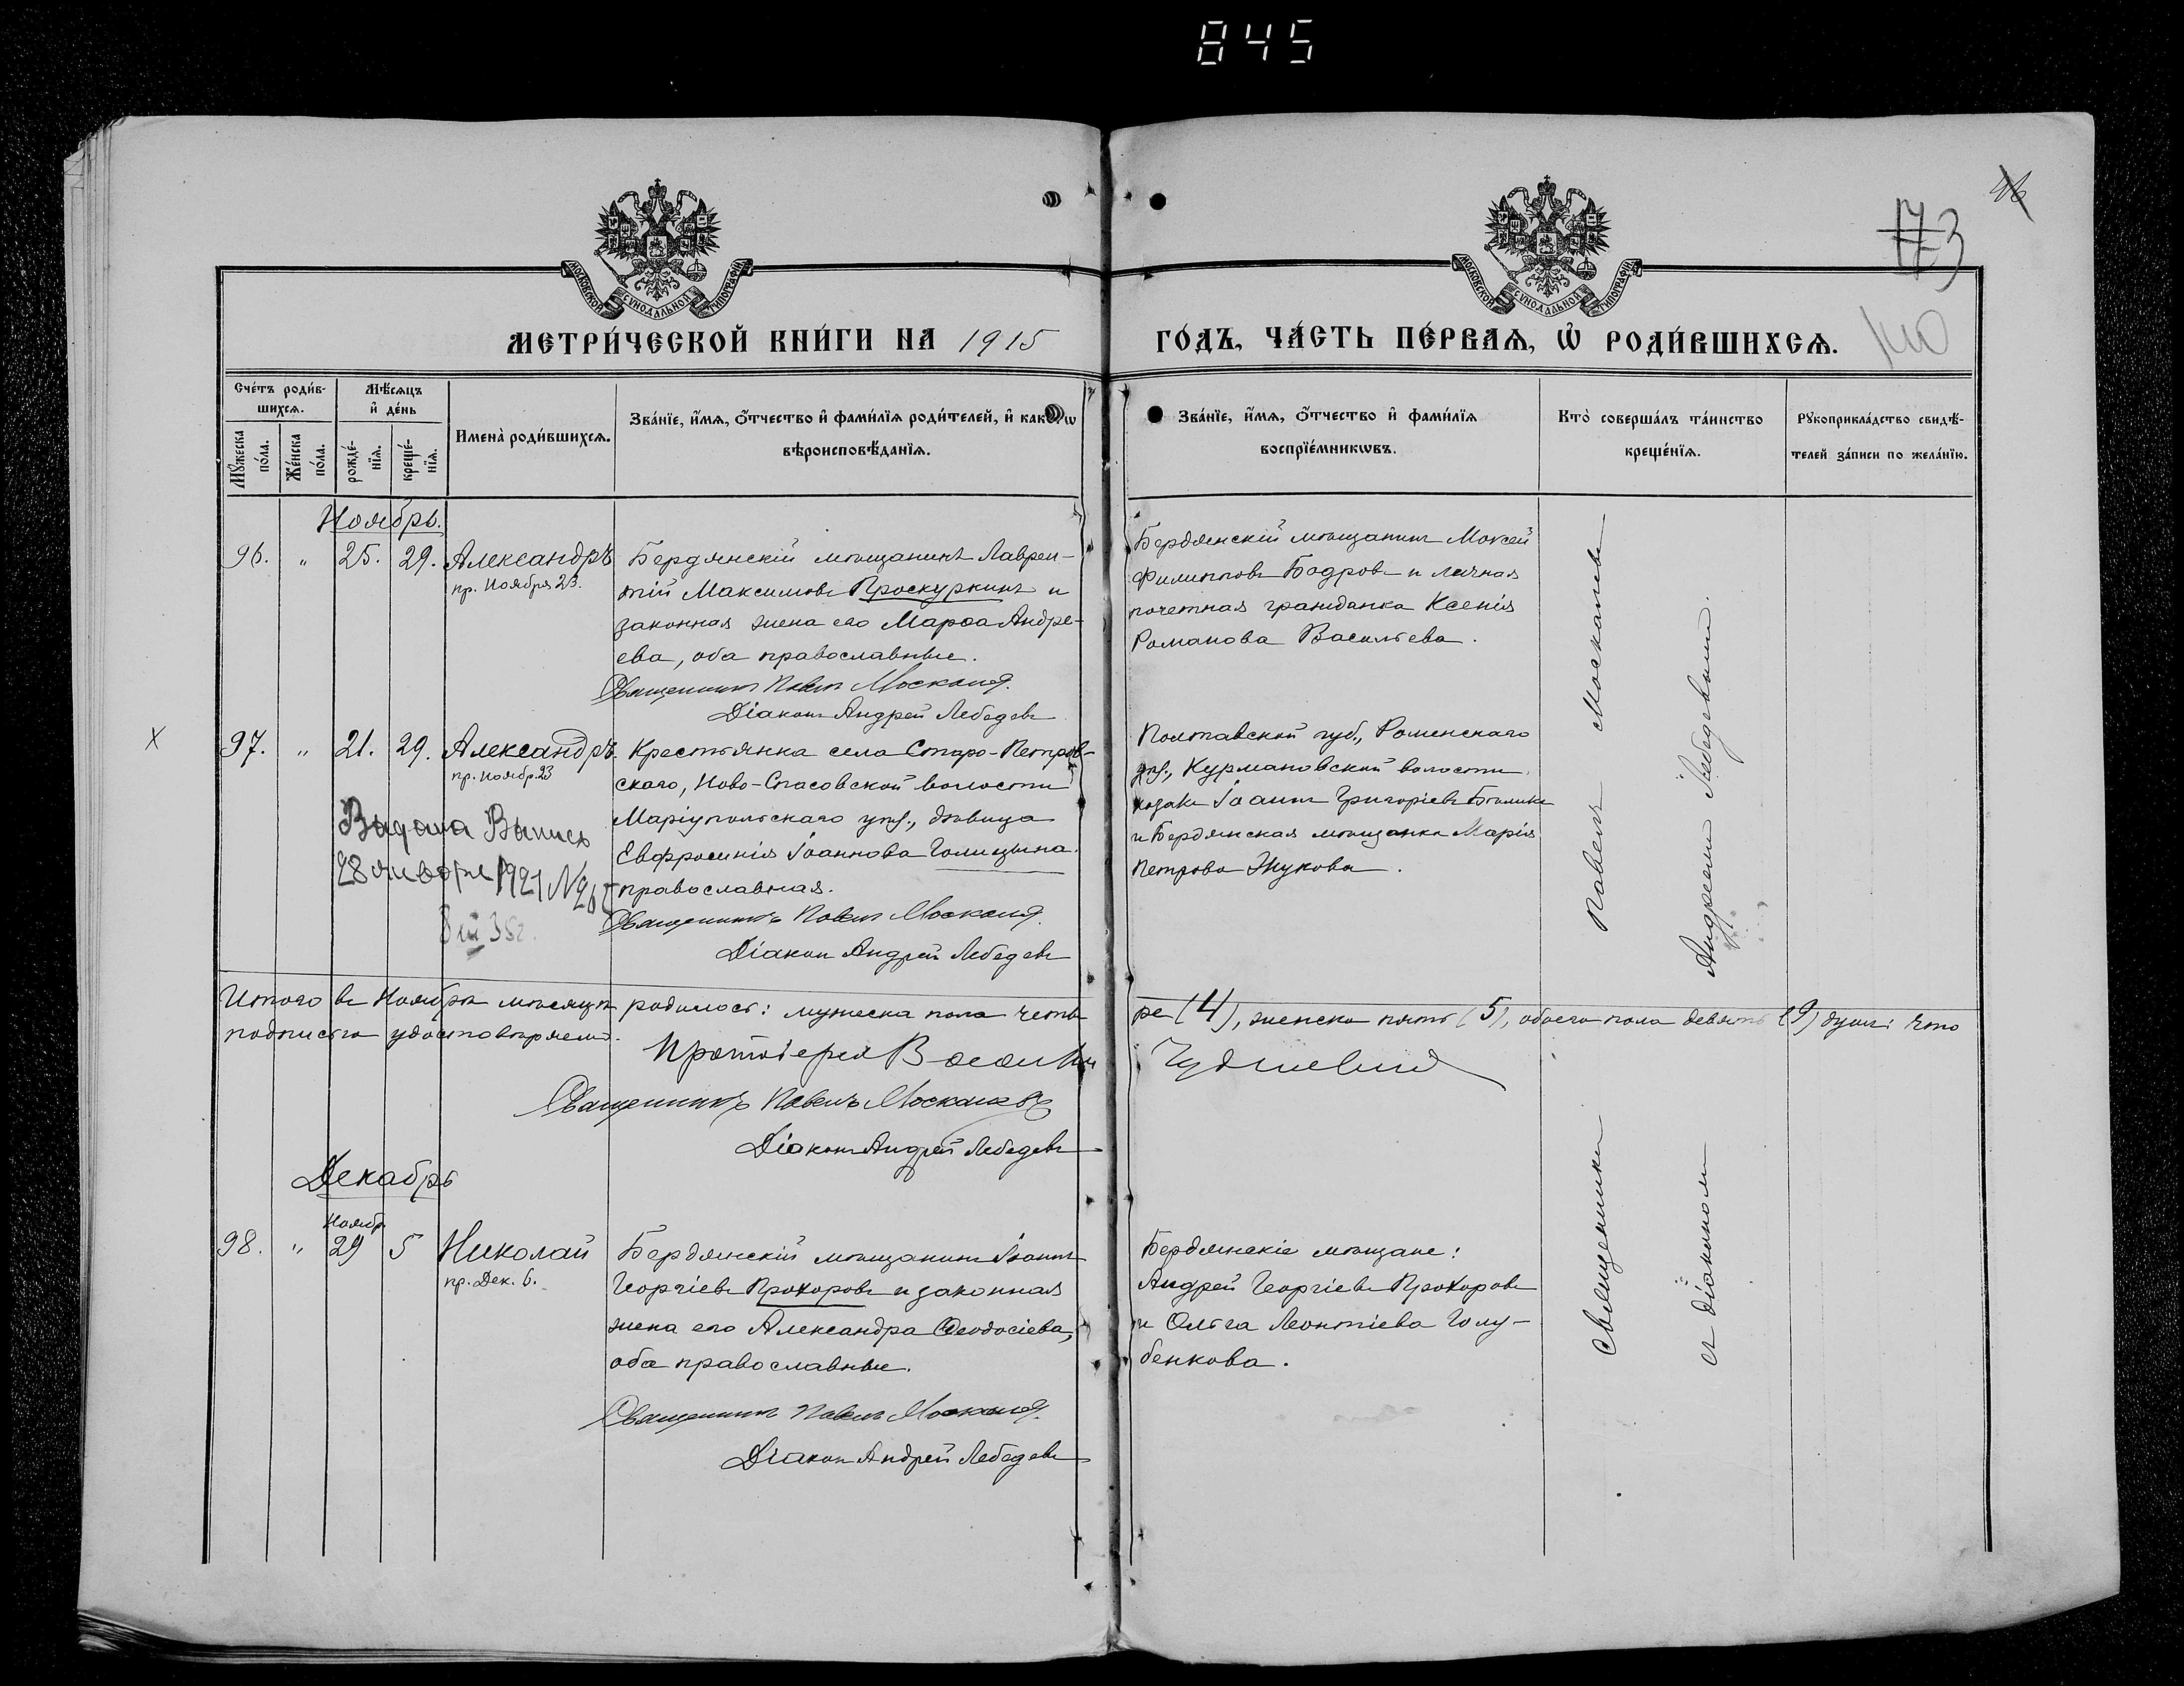 845
46
173
140
МОСКОВСКОЙ СУНОДАЛЬНОЙ ТИПОГРАФІИ
МОСКОВСКОЙ СУНОДАЛЬНОЙ ТИПОГРАФІИ
МЕТРИ́ЧЕСКОЙ КНИ́ГИ НА 1915
ГО́ДЪ, ЧА́СТЬ ПЕ́РВАѦ, Ѡ҆ РОДИ́ВШИХСѦ.
Сче́тъ роди́в-
шихсѧ.
Мѣ́сѧцъ
и҆ де́нь
Мꙋ́жеска по́ла.
Же́нска по́ла.
рожде́-
нїѧ.
креще́-
нїѧ.
Имена̀ роди́вшихсѧ.
Зва́нїе, и҆́мѧ, о҆́тчество и҆ фами́лїѧ роди́телей, и҆ како́гѡ
вѣроисповѣ́данїѧ.
Зва́нїе, и҆́мѧ, о҆́тчество и҆ фами́лїѧ
воспрїе́мникѡвъ.
Кто̀ соверша́лъ та́инство
креще́нїѧ.
Рꙋкоприкла́дство свидѣ́-
телей за́писи по жела́нїю.
Ноябрь.
96. " 25. 29. Александръ
пр. Ноября 23.
Бердянскій мѣщанинъ Лаврен-
тій Максимовъ Проскуркинъ и
законная жена его Марѳа Андре-
ева, оба православные.
Священникъ Павелъ Москалевъ
Діаконъ Андрей Лебедевъ
Бердянскій мѣщанинъ Моисей
Филипповъ Бодровъ и личная
почетная гражданка Ксенія
Романова Васильева.
X
97. " 21. 29. Александръ.
пр. Ноябр. 23
Крестьянка села Старо-Петров-
скаго, Ново-Спасовской волости
Маріупольскаго уѣз., дѣвица
Евфросинія Іоаннова Голицына
православная.
Священникъ Павелъ Москалевъ
Діаконъ Андрей Лебедевъ
Видана Выпись
28 января 1921 №
Полтавской губ., Роменскаго
уѣз., Курмановской волости
козакъ Іоаннъ Григоріевъ
и Бердянская мѣщанка Марія
Петрова Жукова.
Итого въ Ноябрѣ мѣсяцѣ родилось: мужеска пола четы
ре (4), женска пять (5), обоего пола девять (9) душъ: что
подписью удостовѣряемъ.
Протоіерей Василій
Священникъ Павелъ Москалевъ
Діаконъ Андрей Лебедевъ
Декабрь
Ноябр.
98. " 29 5 Николай
пр. Дек. 6.
Бердянскій мѣщанинъ Іоаннъ
Георгіевъ Прохоровъ и законная
жена его Александра Ѳеодосіева,
оба православные.
Священникъ Павелъ Москалевъ
Діаконъ Андрей Лебедевъ
Бердянскіе мѣщане:
Андрей Георгіевъ Прохоровъ
и Ольга Леонтіева Голу-
бенкова.
Священникъ Павелъ Москалевъ
съ діакономъ Андреемъ Лебедевымъ.